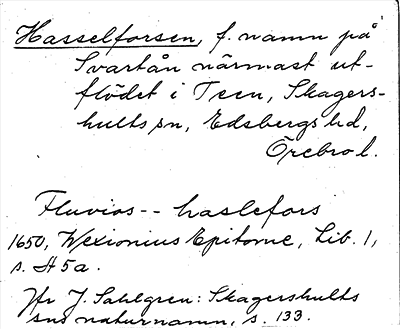 Hasselforsen, f. namn på
Svartån närmast ut-
flödet i Teen, Skagers-
hults sn, Edsbergs hd,
Örebro l.
Fluvios -- haslefors
1650, Wexionius Epitome, Lib. 1,
s. H5a.
Jfr J. Sahlgren: Skagershults
sns naturnamn, s. 133.